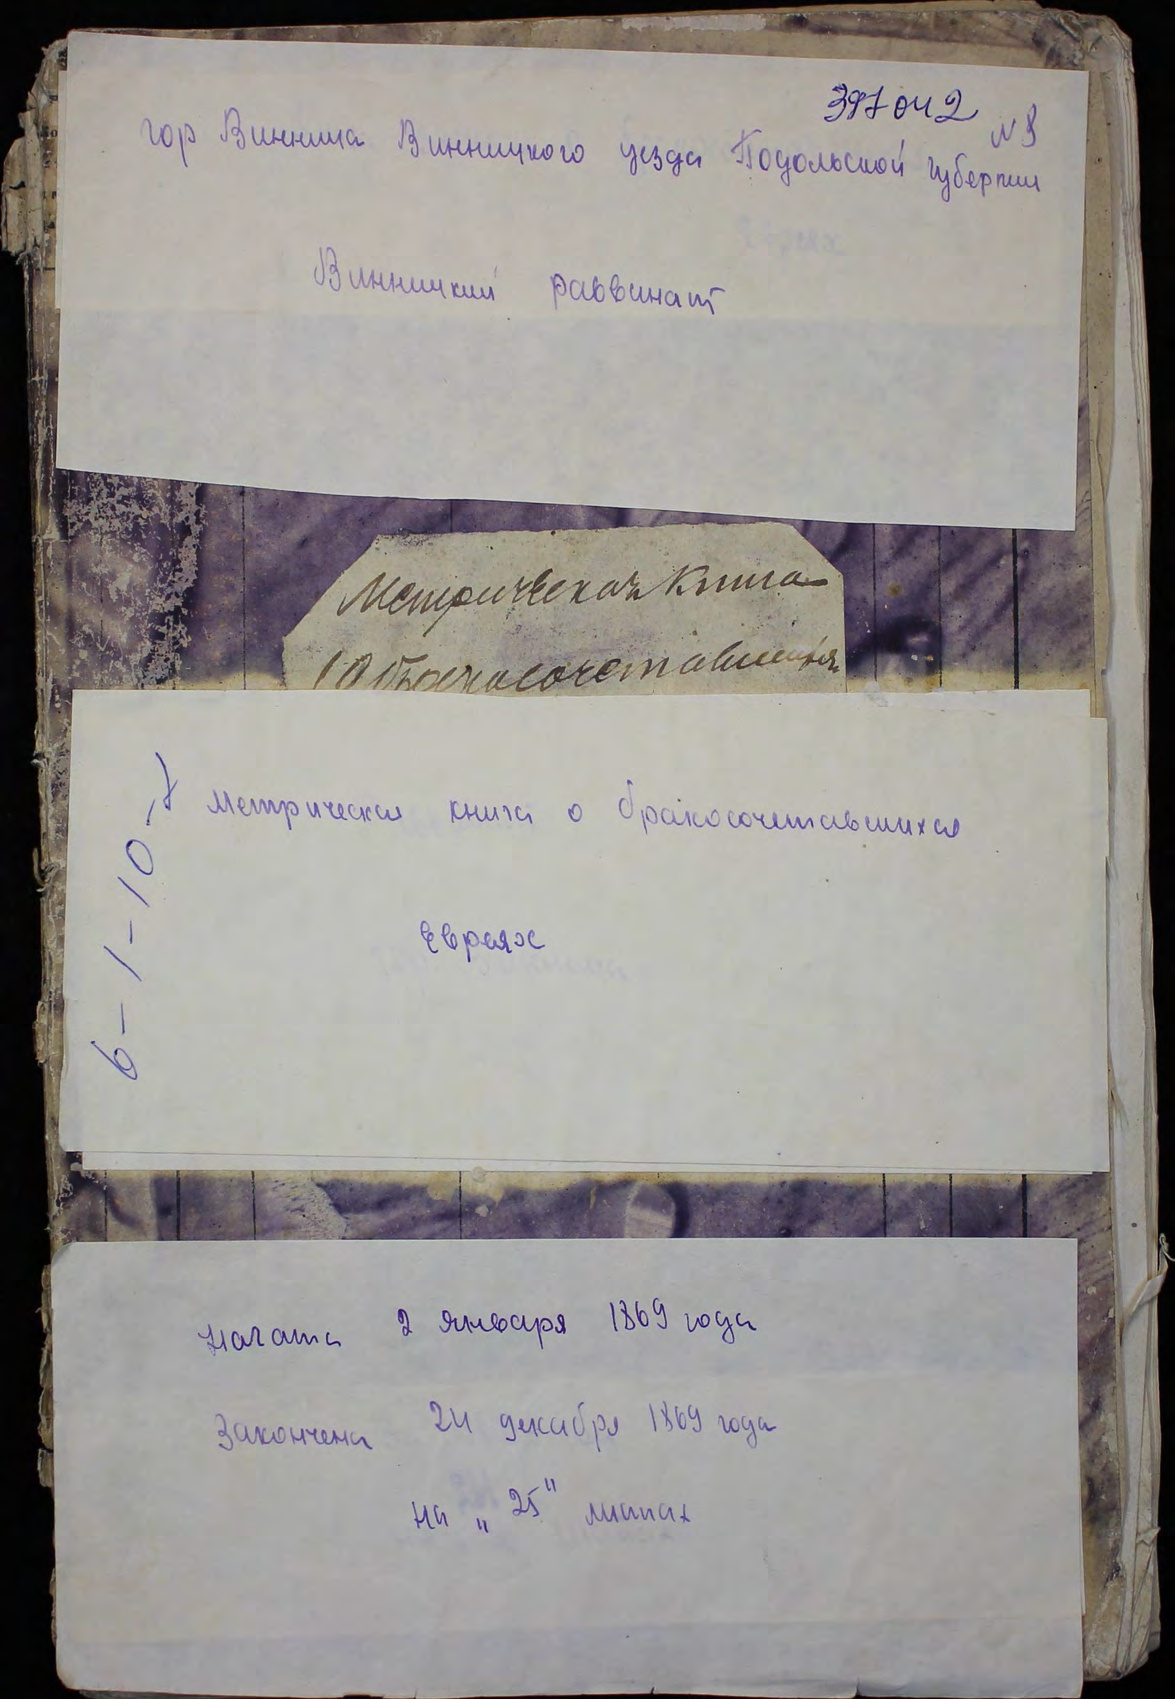 397042
гор Винница Винницкого уезда Подольской губернии
Винницкий раввинат
Метрическая Книга
О бракосочетавшихся
Метрическая книга о бракосочетавшихся
Евреях
6-1-10-7
Начата 2 января 1869 года
Закончена 24 декабря 1869 года
на „25" листах